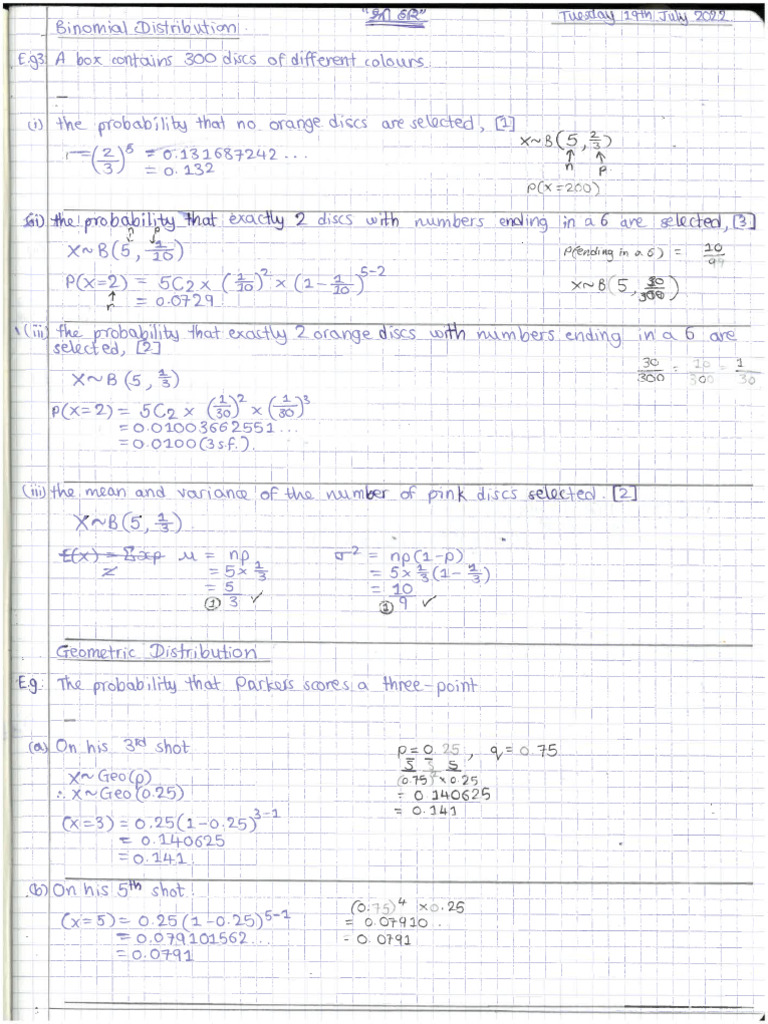 Tuesday 19th July 2022
Binomial Distribution.
E.g3. A box contains 300 discs of different colours.
(i) the probability that no orange discs are selected, [1]
= (2/3)^5 = 0.131687242...
= 0.132
X~B(5, 2/3)
n p
P(X=200)
(ii) the probability that exactly 2 discs with numbers ending in a 6 are selected, [3]
n p
X~B(5, 1/10)
P(X=2) = 5C2 × (1/10)^2 × (1-1/10)^5-2
r = 0.0729.
P(ending in a 6) = 10/99
X~B(5, 30/300)
(iii) the probability that exactly 2 orange discs with numbers ending in a 6 are
selected, [2]
30/300 = 10/300 = 1/30
X~B(5, 1/3)
P(X=2) = 5C2 × (1/30)^2 × (1/30)^3
= 0.01003662551...
= 0.0100(3s.f.).
(iii) the mean and variance of the number of pink discs selected. [2]
X~B(5, 1/3).
E(X) = Σxp μ = np
= 5×1/3
= 5/3 ✓
①
σ² = np(1-p)
= 5×1/3(1-1/3)
= 10/9 ✓
①
Geometric Distribution
E.g. The probability that Parkers scores a three-point
(a) On his 3rd shot
X~Geo(p)
∴ X~Geo(0.25)
(X=3) = 0.25(1-0.25)^3-1
= 0.140625
= 0.141.
p = 0.25, q = 0.75
(0.75)^2 × 0.25
= 0.140625
= 0.141
(b) On his 5th shot.
(X=5) = 0.25(1-0.25)^5-1
= 0.079101562...
= 0.0791
(0.75)^4 × 0.25
= 0.07910..
= 0.0791